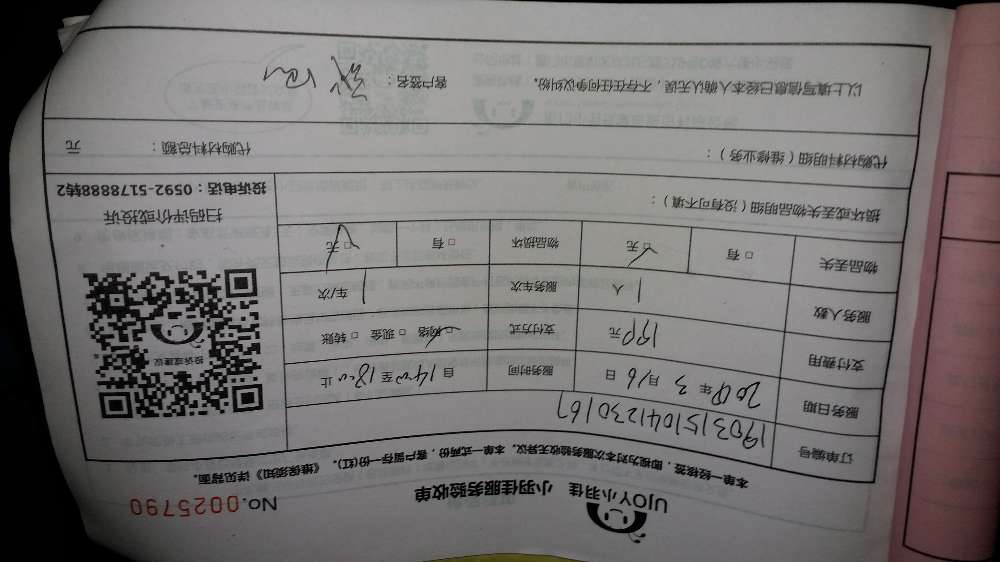 UJOY小羽佳 小羽佳服务验收单 No.0025790
本单一经核签，即视为对本次服务验收无异议。本单一式两份，客户留存一份(红)。《维保须知》详见背面。
订单编号 190315104123016
服务日期 2019年3月16日 服务时间 自14:00至18:00止
支付费用 190元 支付方式 ☑网络 □现金 □转账
服务人数 1人 服务车次 1车/次
物品丢失 □有 ☑无 物品损坏 □有 ☑无
投诉或建议
扫码评价或投诉
投诉电话：0592-5178888转2
损坏或丢失物品明细（没有可不填）：
代购材料明细（维修业务）： 代购材料总额： 元
以上填写信息已经本人确认无误，不存在任何争议纠纷。 客户签名：